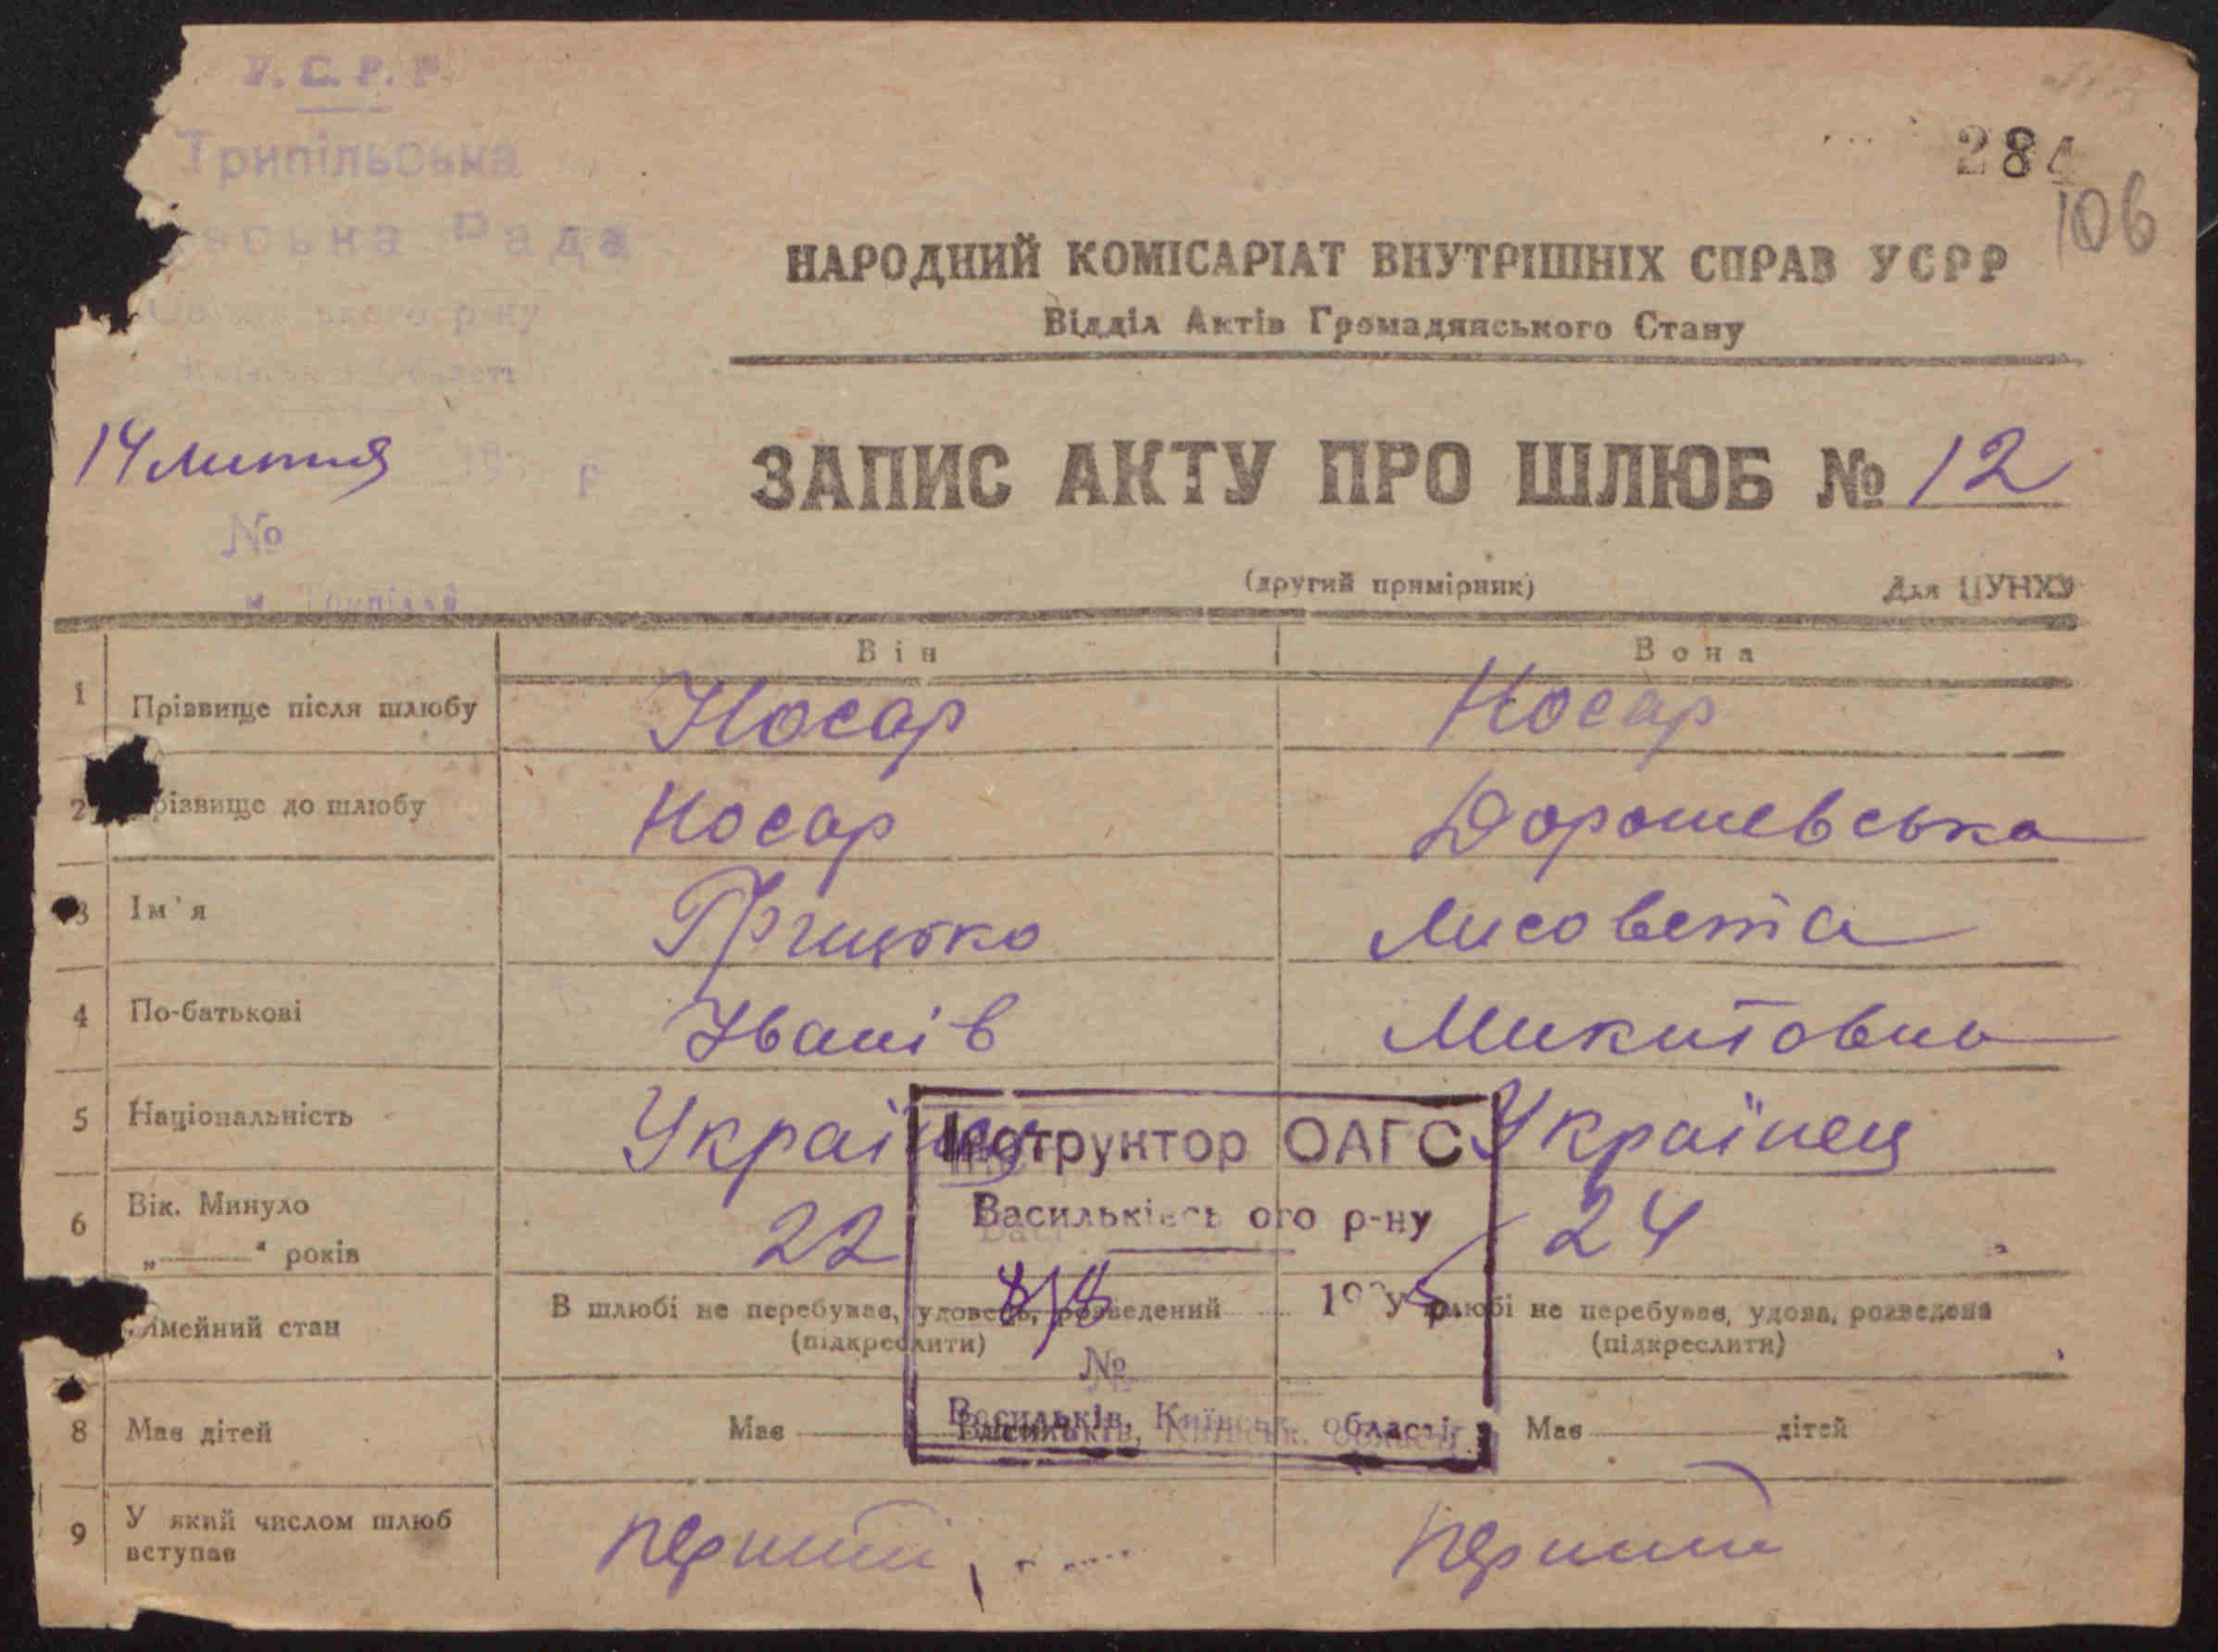 У.С.Р.Р.
Трипільська
Рада
р-ну
284
106
НАРОДНИЙ КОМІСАРІАТ ВНУТРІШНІХ СПРАВ УСРР
Відділ Актів Громадянського Стану
14 липня 19 р
ЗАПИС АКТУ ПРО ШЛЮБ № 12
№
м. Трипілля
(другий примірник) Для ЦУНХУ
Він Вона
1 Прізвище після шлюбу Носар Носар
2 різвище до шлюбу Носар Дорошевська
3 Ім'я Грицько Лисовета
4 По-батькові Іванів Микитовна
5 Національність Українец Українец
Інструктор ОАГС
6 Вік. Минуло 22 24
„—“ років
Васильківсь ого р-ну
8/8 5
імейний стан В шлюбі не перебуває, удовець, розведений У шлюбі не перебуває, удова, розведена
(підкреслити) (підкреслити)
№
8 Має дітей Має Має дітей
Васильків, Київськ. області
9 У який числом шлюб вступає перший перший